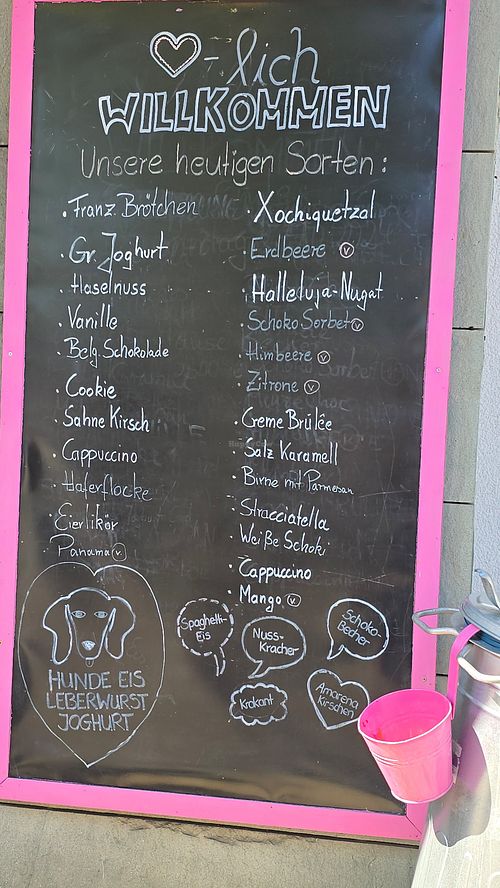 ♡-lich
WILLKOMMEN
Unsere heutigen Sorten:
· Franz. Brötchen
· Gr. Joghurt
· Haselnuss
· Vanille
· Belg. Schokolade
· Cookie
· Sahne Kirsch
· Cappuccino
· Haferflocke
· Eierlikör
· Panama ⓥ
· Xochiquetzal
· Erdbeere ⓥ
· Halleluja-Nugat
· Schoko Sorbet ⓥ
· Himbeere ⓥ
· Zitrone ⓥ
· Creme Brûlêe
· Salz Karamell
· Birne mit Parmesan
· Stracciatella
· Weiße Schoki
· Cappuccino
· Mango ⓥ
HUNDE EIS
LEBERWURST
JOGHURT
Spaghetti-
Eis
Nuss-
Kracher
Schoko-
Becher
Krokant
Amarena
Kirschen